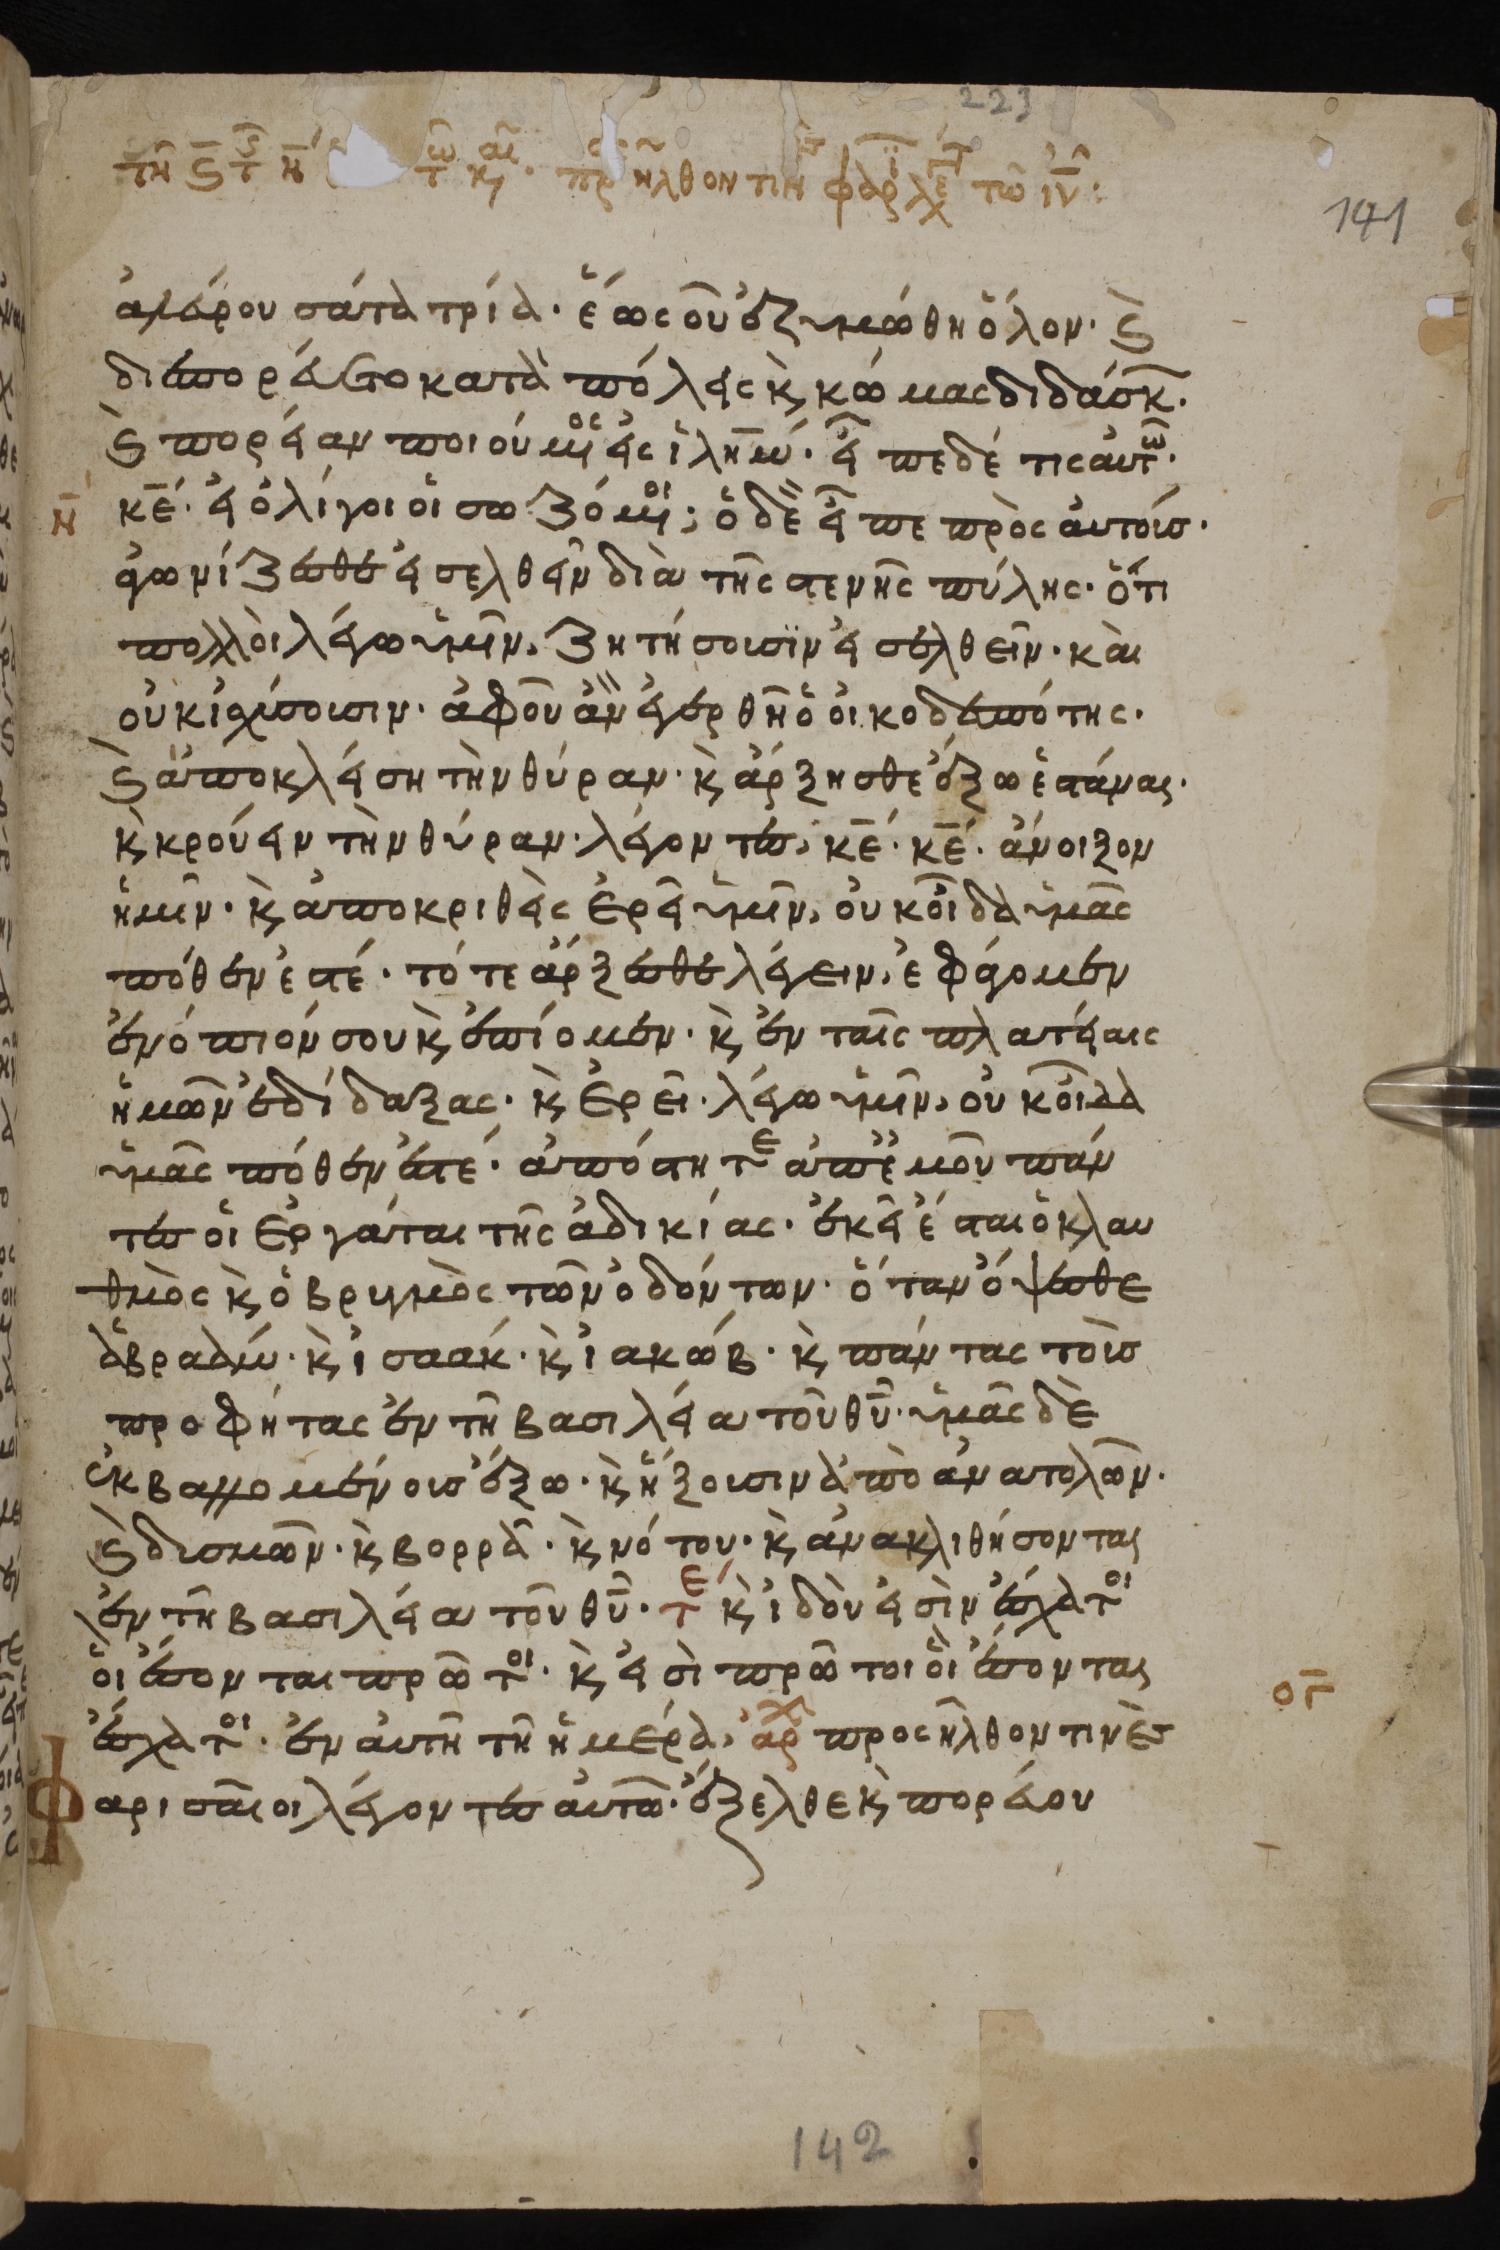 223
τῆ ϛ τ ν τῶ και· πρ ῆλθον τιν φαρ λε τῶ ιῦ:
141
ἀλεύρου σάτα τρία· ἕως οὗ ἐζυμώθη ὅλον· καὶ
διεπορεύετο κατὰ πόλεις κ κώμας διδάσκ.
καὶ πορείαν ποιούμος εἰς ἰλημ· εἶπε δέ τις αὐτῶ·
κε· εἰ ὀλίγοι οἱ σωζόμοι; ὁ δὲ εἶπε πρὸς αὐτοίσ·
ἀγωνίζεσθε εἰσελθεῖν διὰ τῆς στενῆς πύλης· ὅτι
πολλοὶ λέγω ὑμῖν, ζητήσουσϊν εἰσελθεῖν· καὶ
οὐκ ἰσχύσουσιν· ἀφοῦ ἂν ἐγερθῆ ὁ οἰκοδεσπότης·
καὶ ἀποκλείση τὴν θύραν· κ ἄρξησθε ἔξω ἑστάναι·
κ κρούειν τὴν θύραν· λέγοντες, κε· κε· ἄνοιξον
ἡμῖν· κ ἀποκριθεὶς ἐρεῖ ὑμῖν, οὐκ οἶδα ὑμᾶς
πόθεν ἐστέ· τότε ἄρξεσθε λέγειν, ἐφάγομεν
ἐνόπιόν σου κ ἐπίομεν· κ ἐν ταῖς πλατείαις
ἡμῶν ἐδίδαξας· κ ἐρεῖ· λέγω ὑμῖν, οὐκ οἶδα
ὑμᾶς πόθεν ἐστέ· ἀπόστητε ἀπ' ἐμοῦ πάν
τες οἱ ἐργάται τῆς ἀδικίας· ἐκεῖ ἔσται ὁ κλαυ
θμὸς κ ὁ βρυγμὸς τῶν ὀδόντων· ὅταν ὄψεσθε
ἀβραάμ· κ ἰσαάκ· κ ἰακώβ· κ πάντας τοὺσ
προφήτας ἐν τῆ βασιλεία τοῦ θυ· ὑμᾶς δὲ
ἐκβαλλομένους ἔξω· κ ἥξουσιν ἀπὸ ἀνατολῶν·
καὶ δυσμῶν· κ βορρᾶ· κ νότου· κ ἀνακλιθήσονται
ἐν τῆ βασιλεία τοῦ θυ· τε κ ἰδοὺ εἰσὶν ἔσχατοι
οἳ ἔσονται πρῶτοι· κ εἰσὶ πρῶτοι οἳ ἔσονται
ἔσχατοι· ἐν αὐτῆ τῆ ἡμέρα, ἀρχ προσῆλθον τινὲσ
Φαρισαῖοι λέγοντες αὐτῶ· ἔξελθε κ πορεύου
ν
ογ
142